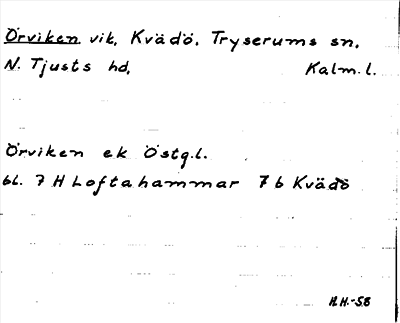 Örviken vik, Kvädö, Tryserums sn,
N. Tjusts hd, Kalm.l.
Örviken ek Östg.l.
bl. 7 H Loftahammar 7 b Kvädö
H.H.-58